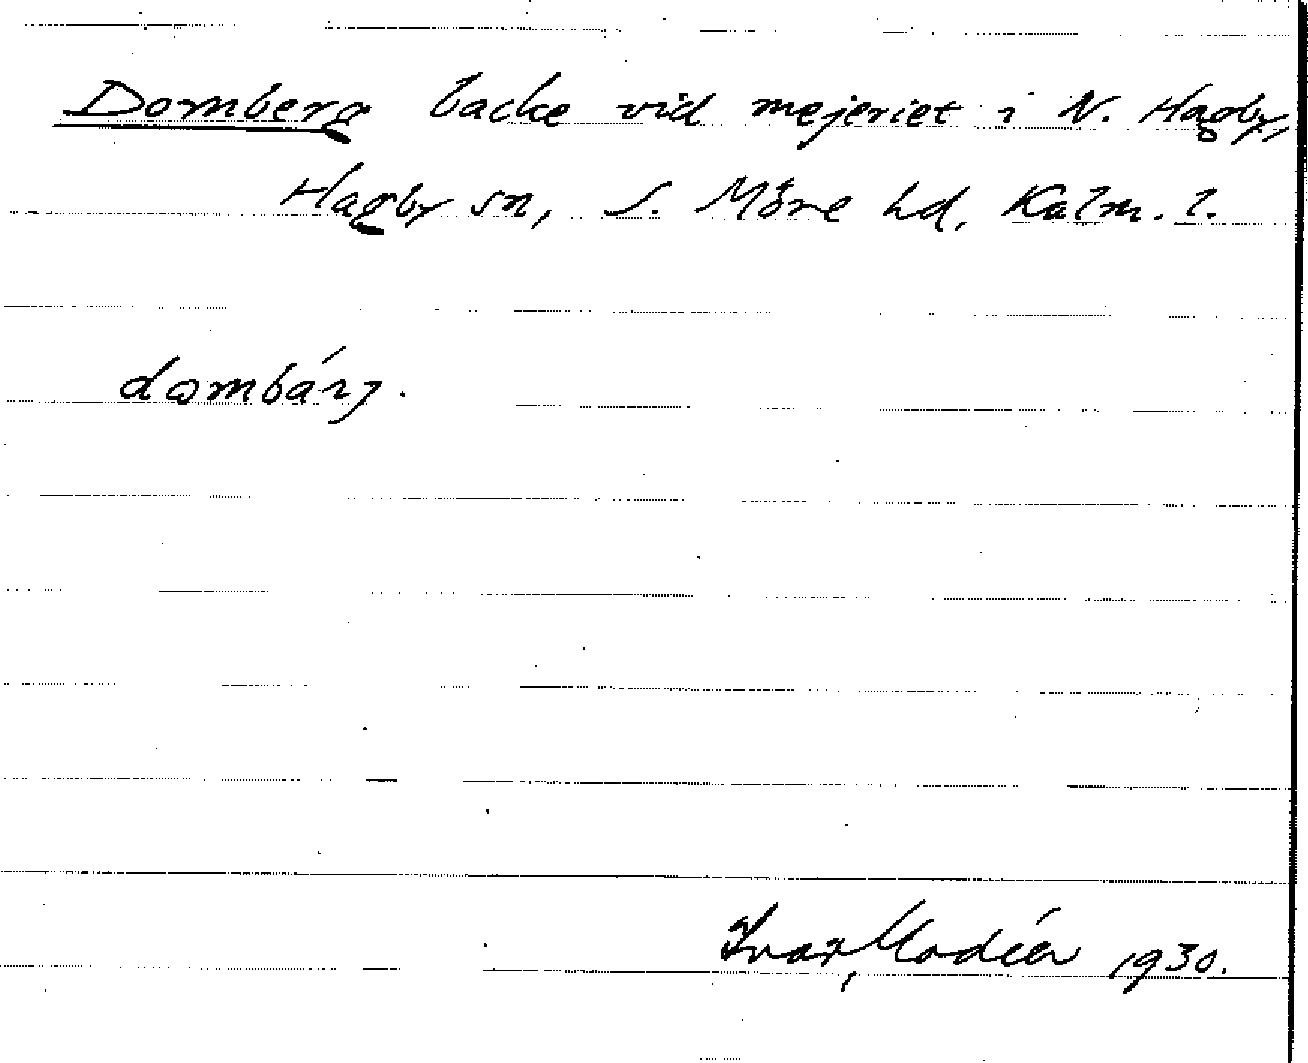 Domberg backe vid mejeriet i N. Hagby,
Hagby sn, S. Möre hd, Kalm. l.
dombárj.
Ivar Modéer 1930.